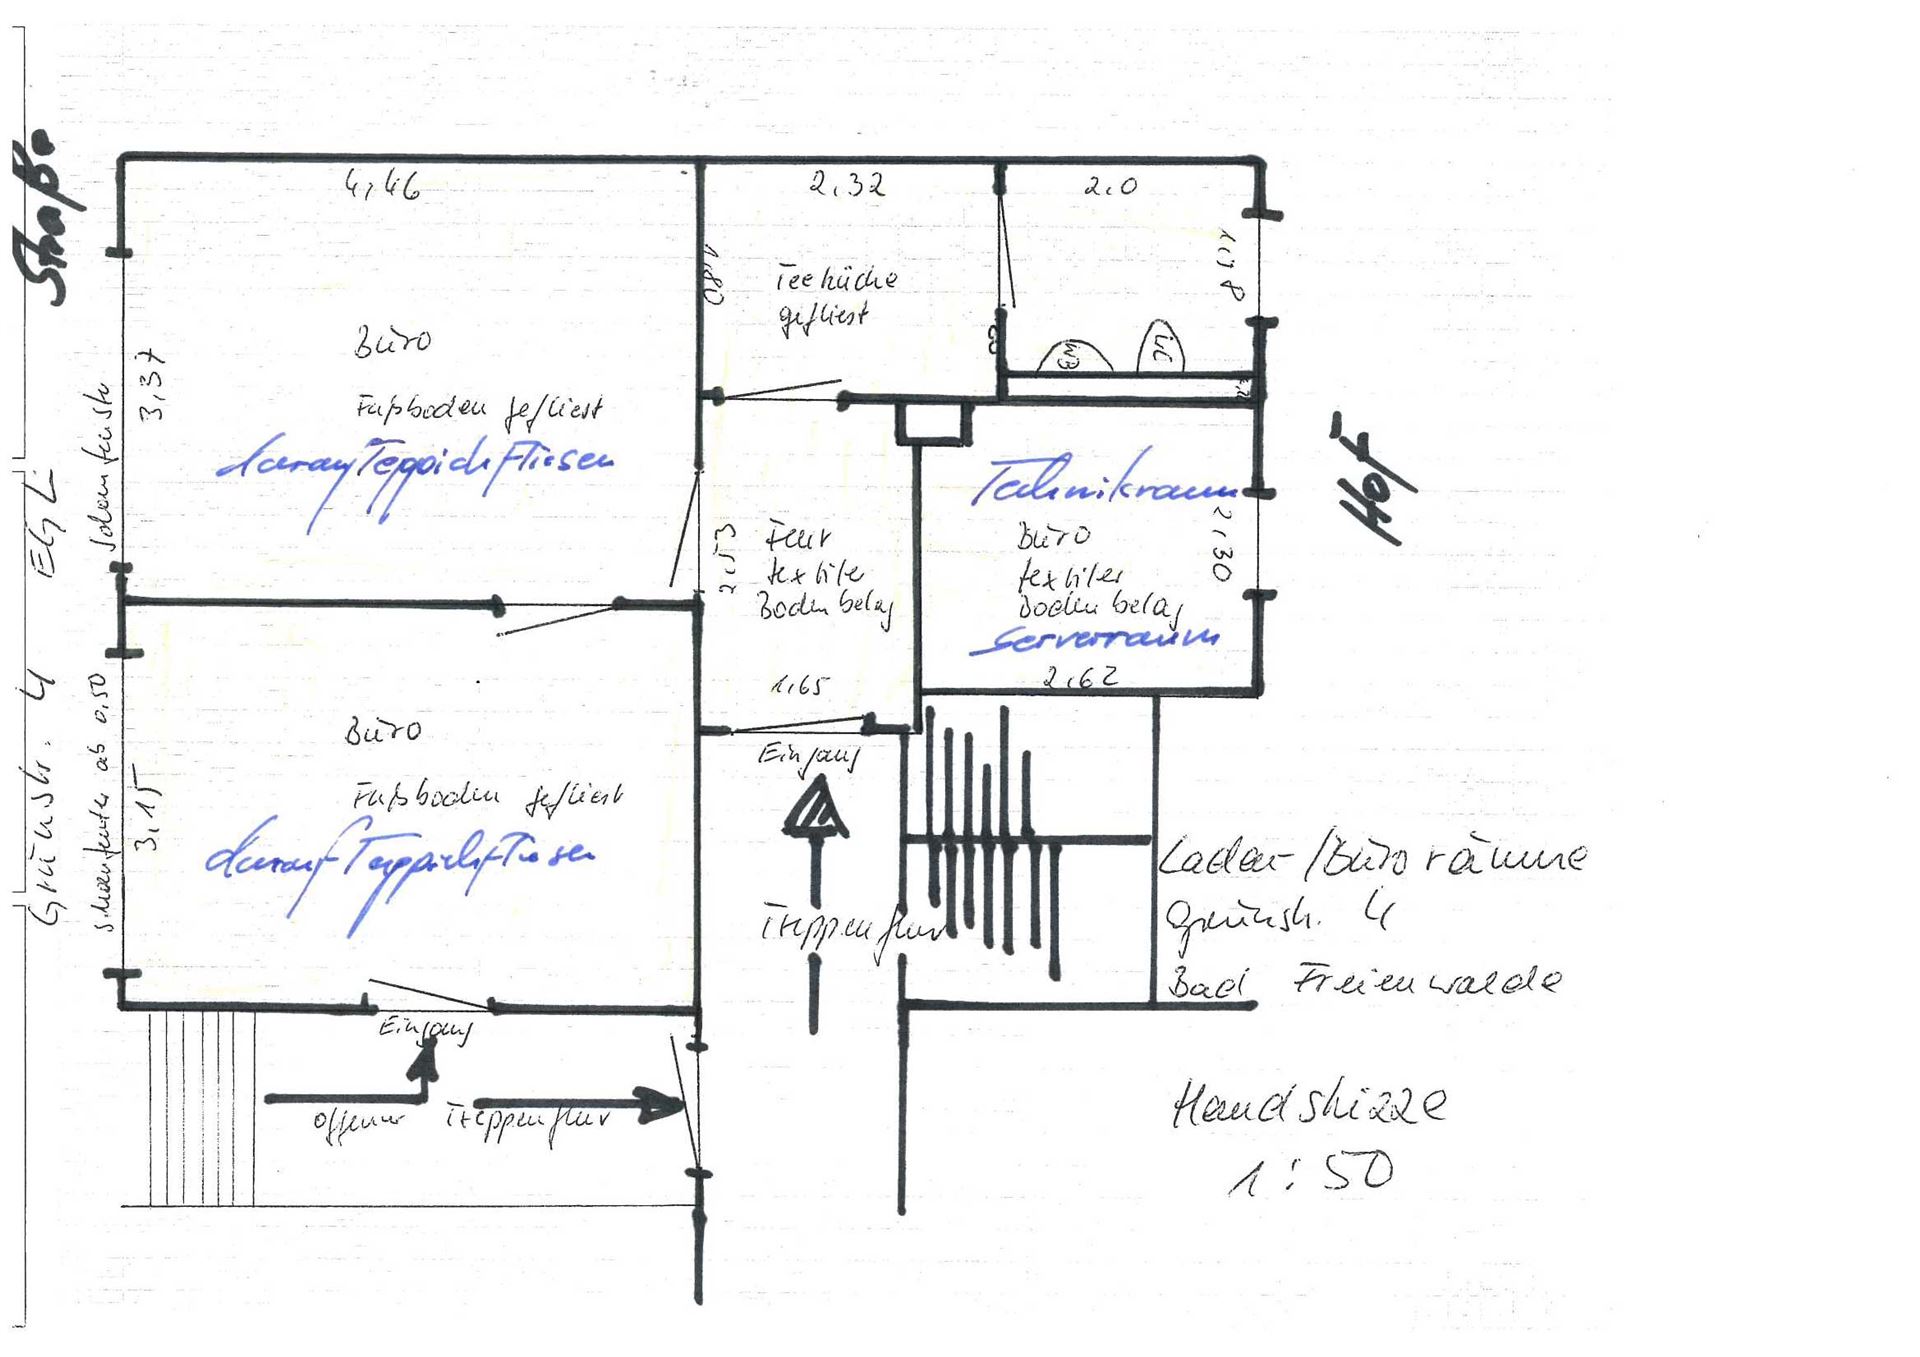 Straße
Grünstr. 4 EGL
Schaufenster
Schaufenster ab 0,50
4,46
3,37
Büro
Fußboden gefliest
darauf Teppich Fliesen
2,32
1,80
Teeküche
gefliest
2,0
1,98
WB
WC
Hof
2,53
Flur
textiler
Bodenbelag
1,65
Technikraum
Büro
textiler
Bodenbelag
Serverraum
2,30
2,62
3,15
Büro
Fußboden gefliest
darauf Teppichfliesen
Eingang
Treppenflur
Eingang
Offener Treppenflur
Laden-/Büroräume
Grünstr. 4
Bad Freienwalde
Handskizze
1:50